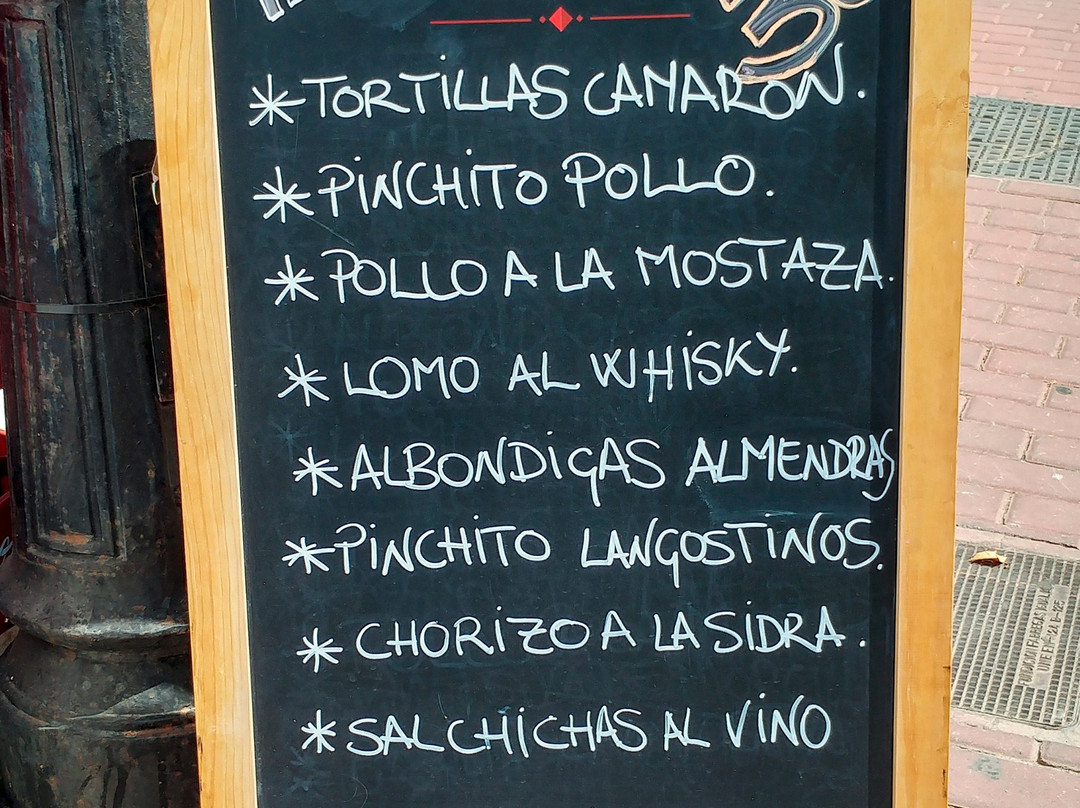 * TORTILLAS CAMARON.
* PINCHITO POLLO.
* POLLO A LA MOSTAZA.
* LOMO AL WHISKY.
* ALBONDIGAS ALMENDRAS
* PINCHITO LANGOSTINOS.
* CHORIZO A LA SIDRA.
* SALCHICHAS AL VINO